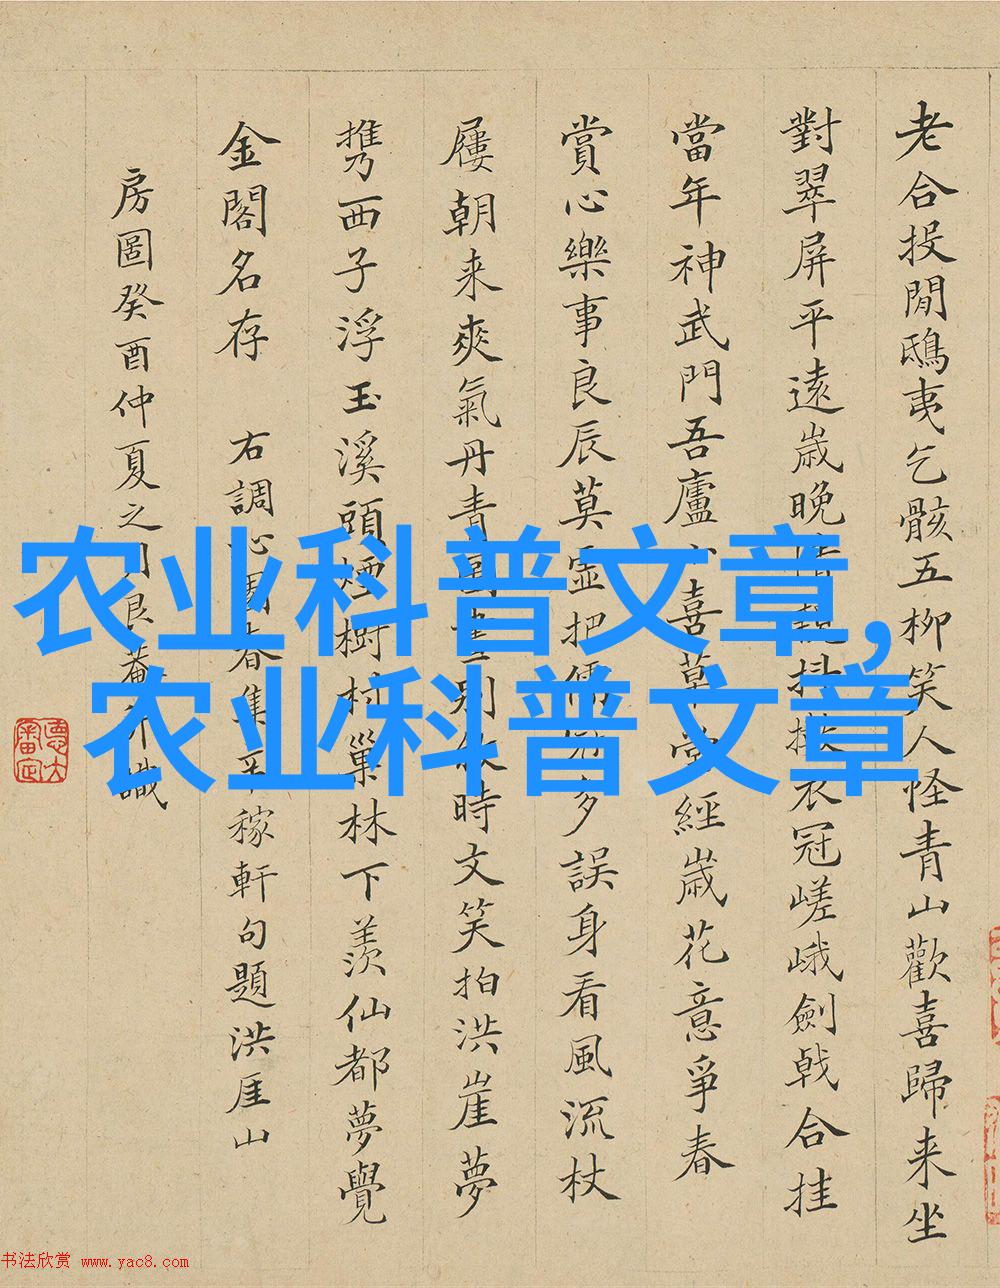 老合投閒鴟夷乞骸五柳笑人怪青山歡喜歸来坐
對翠屏平遠歲晚情親抖擻衣冠嵯峨劍戟合挂
當年神武門吾廬小喜草堂經歲花意爭春
賞心樂事良辰莫虛把儒冠多誤身看風流杖
屨朝来爽氣丹青圖畫別時文笑拍洪崖夢
携西子浮玉溪頭煙樹村巢林下羨仙都夢覺
金閣名存 右調心園春集辛稼軒句題洪厓山
房圖癸酉仲夏之月良菴并識
农业科普文章,
农业科普文章
书法欣赏 www.yac8.com